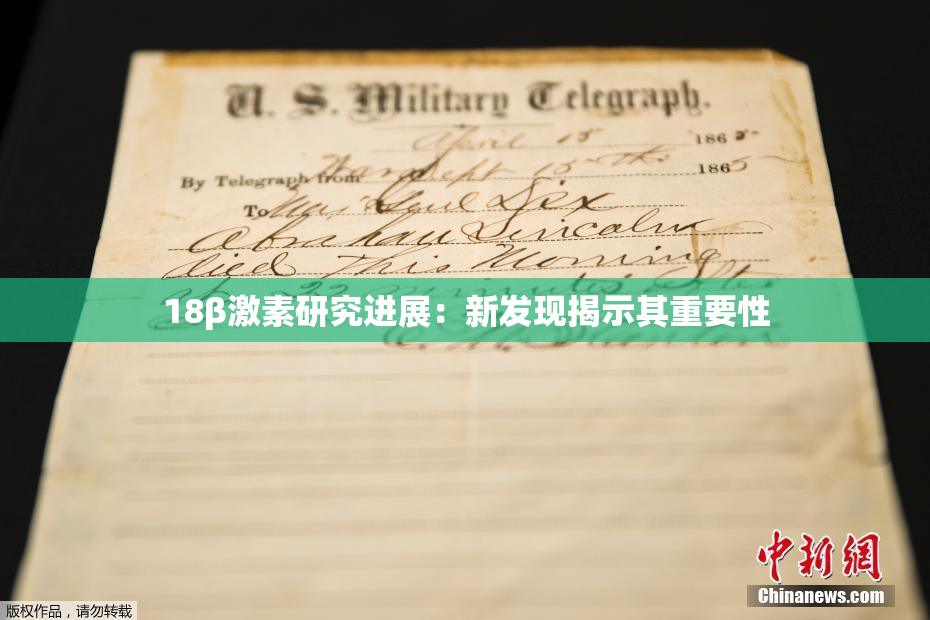 U. S. Military Telegraph.
April 15 1865
By Telegraph from War Dept 15th 1865
To Maj Genl Dix
Abraham Lincoln
died This Morning
22 minutes after
18β激素研究进展：新发现揭示其重要性
中新网
Chinanews.com
版权作品，请勿转载